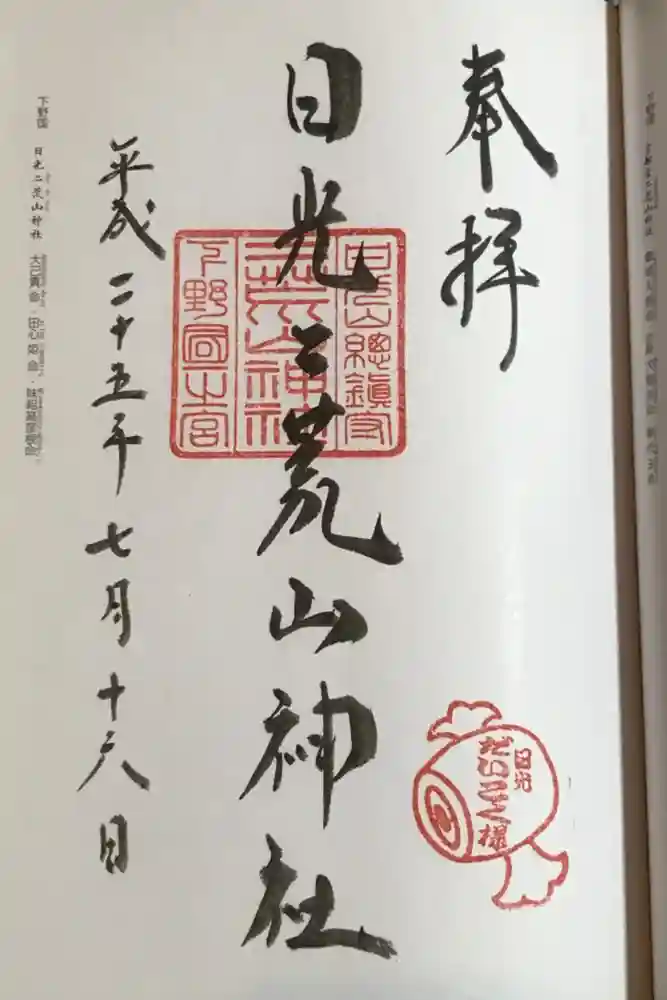 奉拝
日光二荒山神社
日光山總鎮守
二荒山神社
下野国一之宮
日光
だいこく様
平成二十五年七月十六日
下野国 日光二荒山神社 大己貴命・田心姫命・味耜高彦根命